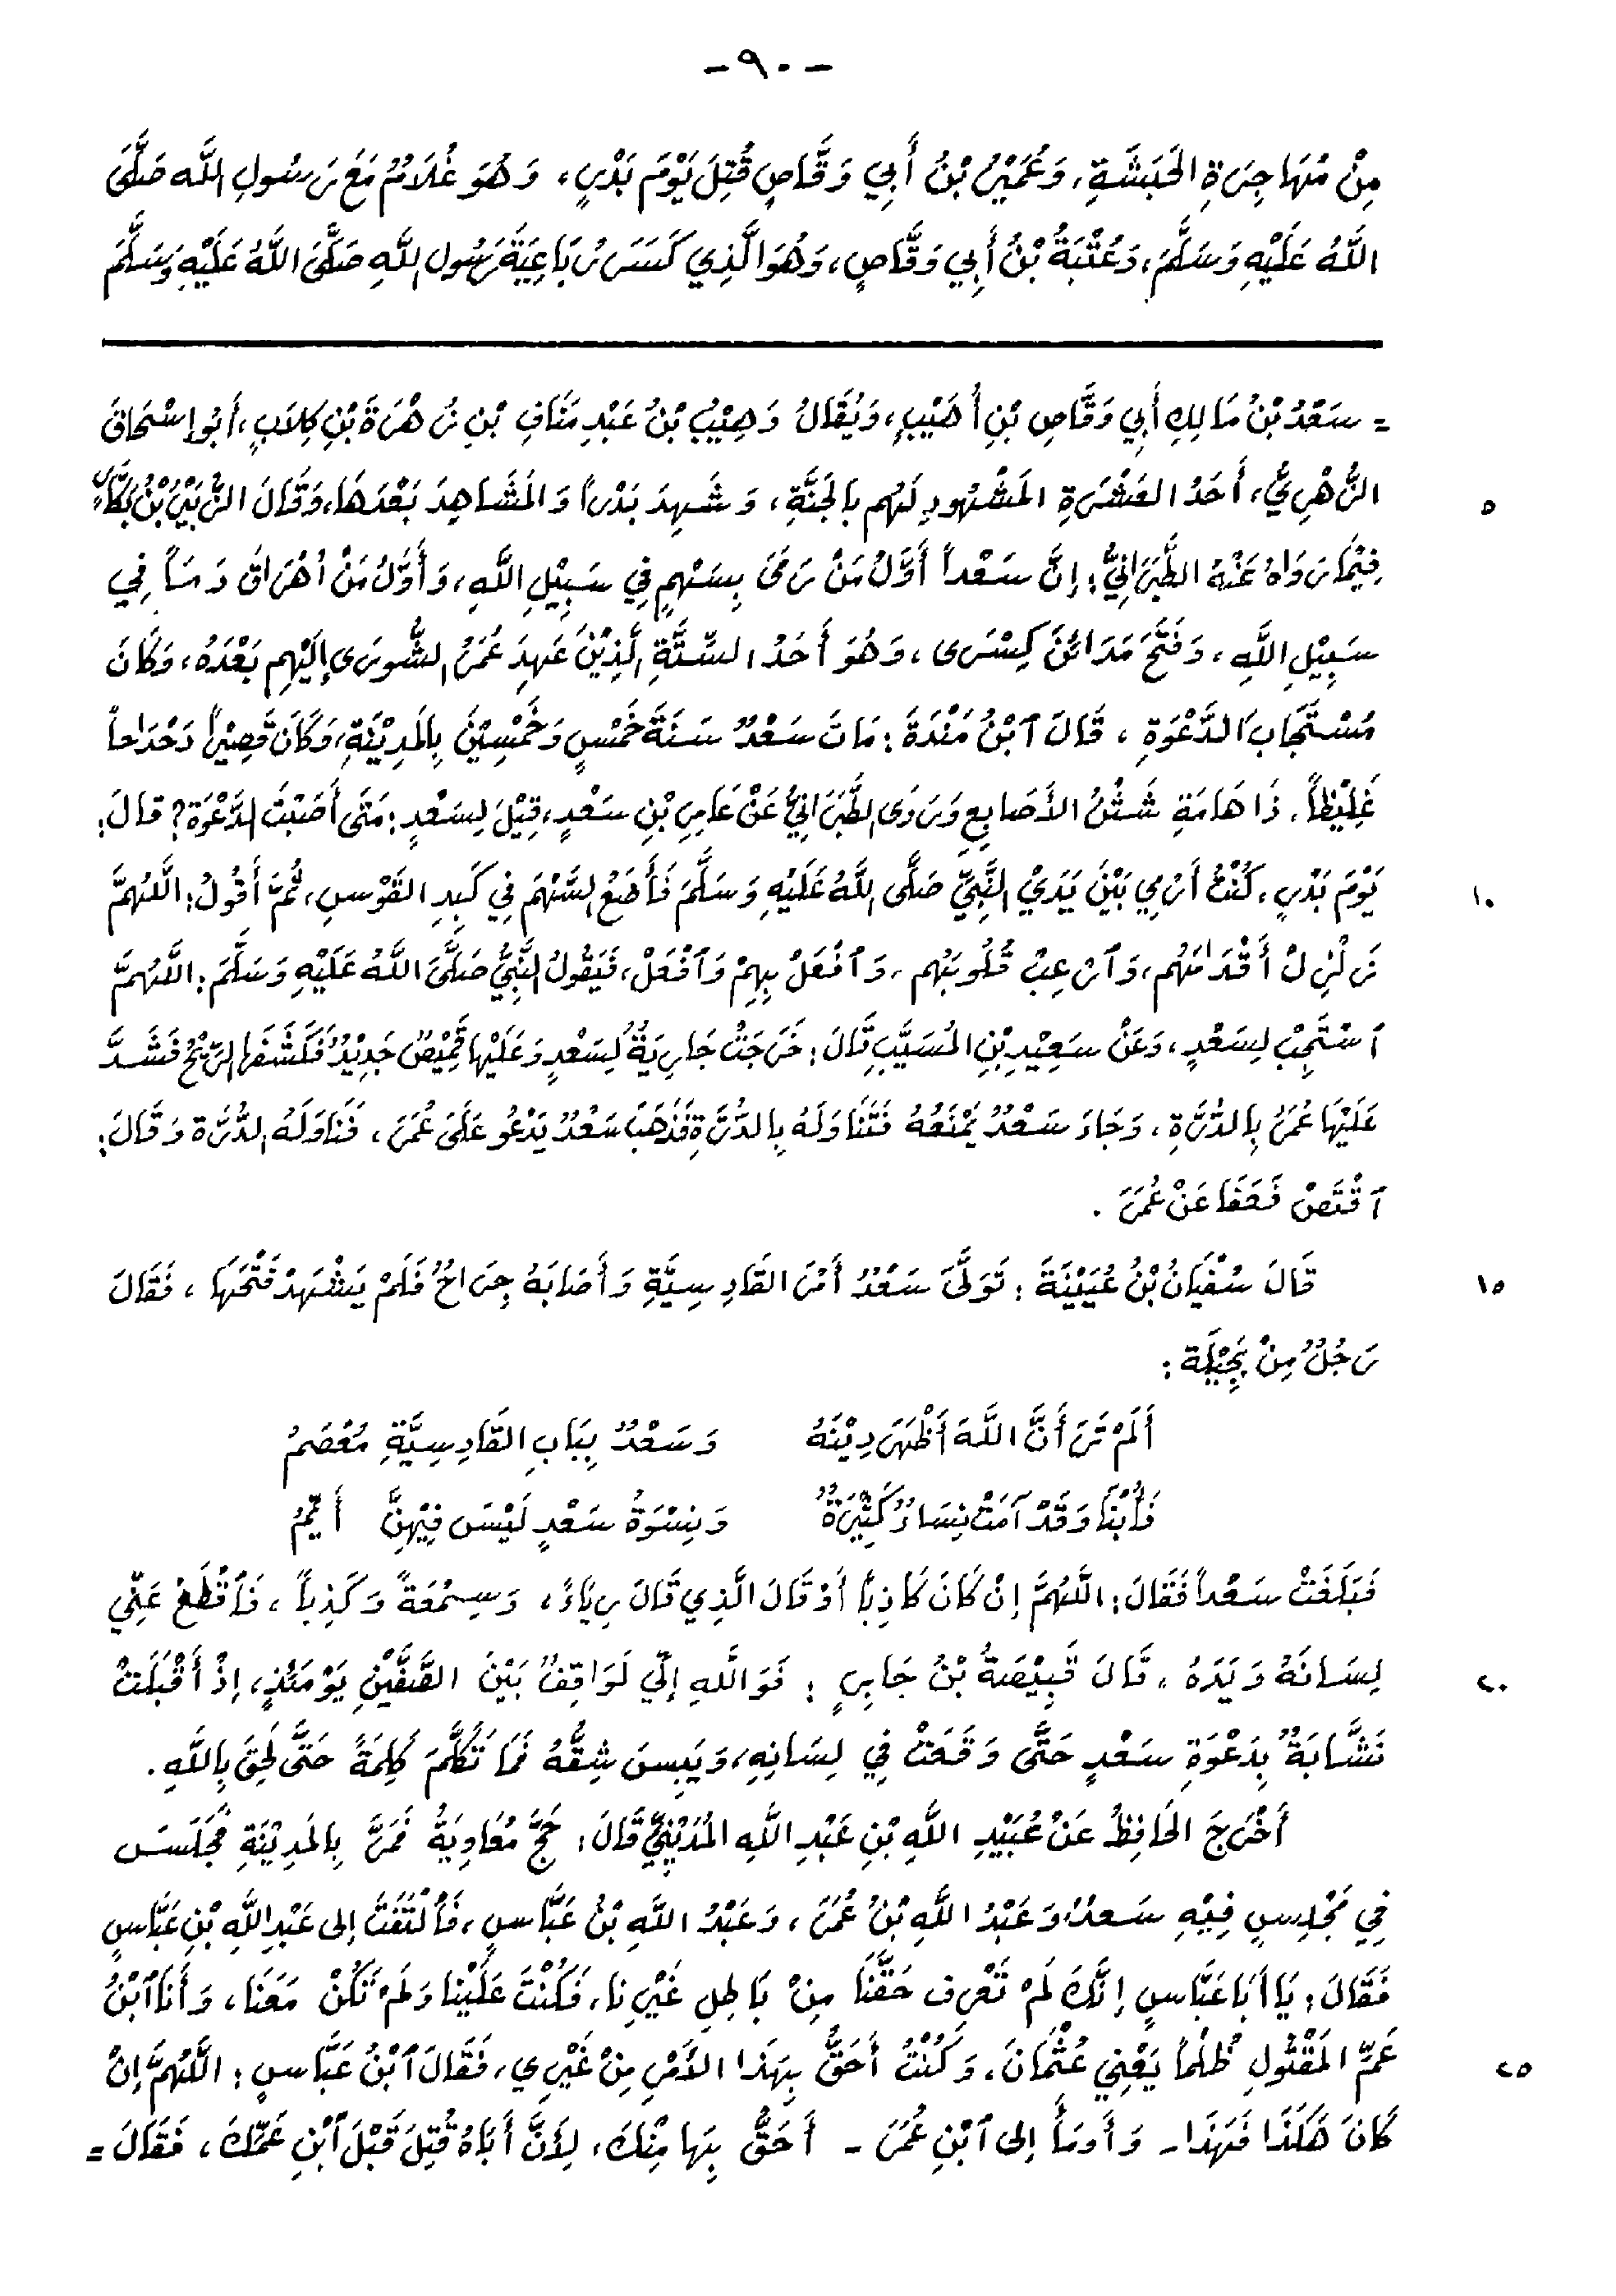 -٩٠-
مِنْ مُهَاجِرَةِ الحَبَشَةِ، وَعُمَيْرُ بْنُ أَبِي وَقَّاصٍ قُتِلَ يَوْمَ بَدْرٍ، وَهُوَ غُلَامٌ مَعَ رَسُولِ اللَّه صَلَّى
اللَّهُ عَلَيْهِ وَسَلَّمَ، وَعُتْبَةُ بْنُ أَبِي وَقَّاصٍ، وَهُوَ الَّذِي كَسَرَ رُبَاعِيَةَ رَسُولِ اللَّهِ صَلَّى اللَّهُ عَلَيْهِ وَسَلَّمَ
= سَعْدُ بْنُ مَالِكِ أَبِي وَقَّاصِ بْنِ أُهَيْبٍ، وَيُقَالُ وَهِيْبُ بْنُ عَبْدِ مَنَافِ بْنِ زُهْرَةَ بْنِ كِلَابٍ، أَبُو إسْحَاقَ
الزُّهْرِيُّ، أَحَدُ العَشْرَةِ المَشْهُودِ لَهُم بالجَنَّةِ، وَشَهِدَ بَدْراً وَالمَشَاهِدَ بَعْدَهَا، وَقَالَ الزُّبَيْرُ بْنُ بَكَّارٍ
٥
فِيْمَا رَوَاهُ عَنْهُ الطَّبَرَانِيُّ: إنَّ سَعْداً أَوَّلُ مَنْ رَمَى بِسَهْمٍ فِي سَبِيْلِ اللَّهِ، وَأَوَّلُ مَنْ أهْرَاقَ دَمَاً فِي
سَبِيْلِ اللَّهِ، وَفَتَحَ مَدَائِنَ كِسْرَى، وَهُوَ أَحَدُ السِّتَّةِ الَّذِيْنَ عَهِدَ عُمَرُ الشُّورَى إلَيْهِم بَعْدَهُ، وَكَانَ
مُسْتَجَابَ الدَّعْوَةِ، قَالَ ٱبْنُ مَنْدَةَ: مَاتَ سَعْدٌ سَنَةَ خَمْسٍ وَخَمْسِيْنَ بِالمَدِيْنَةِ، وَكَانَ قَصِيْراً دَحْدَاحاً
غَلِيْظاً، ذَا هَامَةٍ شَثْنُ الأَصَابِعِ وَرَوَى الطَّبَرَانِيُّ عَنْ عَامِرِ بْنِ سَعْدٍ، قِيْلَ لِسَعْدٍ: مَتَى أَصَبْتَ الدَّعْوَة؟ قالَ:
يَوْمَ بَدْرٍ، كُنْتُ أَرْمِي بَيْنَ يَدَيْ النَّبِيِّ صَلَّى اللَّهُ عَلَيْهِ وَسَلَّمَ فَأَضَعُ السَّهْمَ فِي كَبِدِ القَوْسِ، ثُمَّ أَقُولُ: اللَّهُمَّ
١٠
زَلْزِلْ أَقْدَامَهُم، وَٱرْعِبْ قُلُوبَهُم، وَٱفْعَلْ بِهِمْ وَٱفْعَلْ، فَيَقُولُ النَّبِيُّ صَلَّى اللَّهُ عَلَيْهِ وَسَلَّمَ: اللَّهُمَّ
ٱسْتَجِبْ لِسَعْدٍ، وَعَنْ سَعِيْدِ بْنِ المُسَيَّبِ قَالَ: خَرَجَتْ جَارِيَةٌ لِسَعْدٍ وَعَلَيْهَا قَمِيْصٌ جَدِيْدٌ فَكَشَفَهَا الرِّيْحُ فَشَدَّ
عَلَيْهَا عُمَرُ بِالدُّرَّةِ، وَجَاءَ سَعْدٌ يَمْنَعُهُ فَتَنَاوَلَهُ بِالدُّرَّةِ فَذَهَبَ سَعْدٌ يَدْعُو عَلَى عُمَرَ، فَنَاوَلَهُ الدُّرَّة وَقَالَ:
ٱقْتَصْ فَعَفَا عَنْ عُمَرَ.
قَالَ سُفْيَانُ بْنُ عُيَيْنَةَ: تَوَلَّى سَعْدٌ أَمْرَ القَادِسِيَّةِ وَأَصَابَهُ جِرَاحٌ فَلَمْ يَشْهَدْ فَتْحَهَا، فَقَالَ
١٥
رَجُلٌ مِنْ بَجِيْلَة:
أَلَمْ تَرَ أَنَّ اللَّهَ أَظْهَرَ دِيْنَهُ وَسَعْدٌ بِبَابِ القَادِسِيَّةِ مُعْصَمُ
فَأُبْنَا وَقَدْ آمَتْ نِسَاءٌ كَثِيْرَةٌ وَنِسْوَةُ سَعْدٍ لَيْسَ فِيْهِنَّ أَيِّمُ
فَبَلَغَتْ سَعْداً فَقَالَ: اللَّهُمَّ إنْ كَانَ كَاذِباً أوْ قَالَ الَّذِي قَالَ رِيَاءً، وَسِمْعَةً وَكَذِباً، فَٱقْطَعْ عَنِّي
لِسَانَهُ وَيَدَهُ، قَالَ قَبِيْصَةُ بْنُ جَابِرٍ: فَوَاللَّهِ إنِّي لَوَاقِفٌ بَيْنَ الصَّفَّيْنِ يَوْمَئِذٍ، إذْ أَقْبَلَتْ
٢٠
نَشَّابَةٌ بِدَعْوَةِ سَعْدٍ حَتَّى وَقَعَتْ فِي لِسَانِهِ، وَيَبِسَ شِقُّهُ فَمَا تَكَلَّمَ كَلِمَةً حَتَّى لَحِقَ بِاللَّهِ.
أَخْرَجَ الحَافِظُ عَنْ عُبَيْدِ اللَّهِ بْنِ عَبْدِ اللَّهِ المُدَيْنِيِّ قَالَ: حَجَّ مُعَاوِيَةُ فَمَرَّ بِالمَدِيْنَةِ فَجَلَسَ
فِي مَجْلِسٍ فِيْهِ سَعدٌ وَعَبْدُ اللَّهِ بْنُ عُمَرَ، وَعَبْدُ اللَّهِ بْنُ عَبَّاسٍ، فَٱلْتَفَتَ إلى عَبْدِ اللَّهِ بْنِ عَبَّاسٍ
فَقَالَ: يَا أبَا عَبَّاسٍ إنَّكَ لَمْ تَعْرِف حَقَّنَا مِنْ بَاطِلِ غَيْرِنا، فَكُنْتَ عَلَيْنا وَلَمْ تَكُنْ مَعَنَا، وَأَنَا ٱبْنُ
عَمِّ المَقْتُولِ ظُلْماً يَعْنِي عُثْمَانَ، وَكُنْتُ أَحَقُّ بِهَذا الأمْرِ مِنْ غَيْرِي، فَقَالَ ٱبْنُ عَبَّاسٍ: اللَّهُمَّ إنْ
٢٥
كَانَ هَكَذَا فَهَذَا - وَأَومَأَ إلى ٱبْنِ عُمَرَ - أَحَقُّ بِهَا مِنْكَ، لِأَنَّ أَبَاهُ قُتِلَ قَبْلَ ٱبْنِ عَمِّكَ، فَقَالَ =